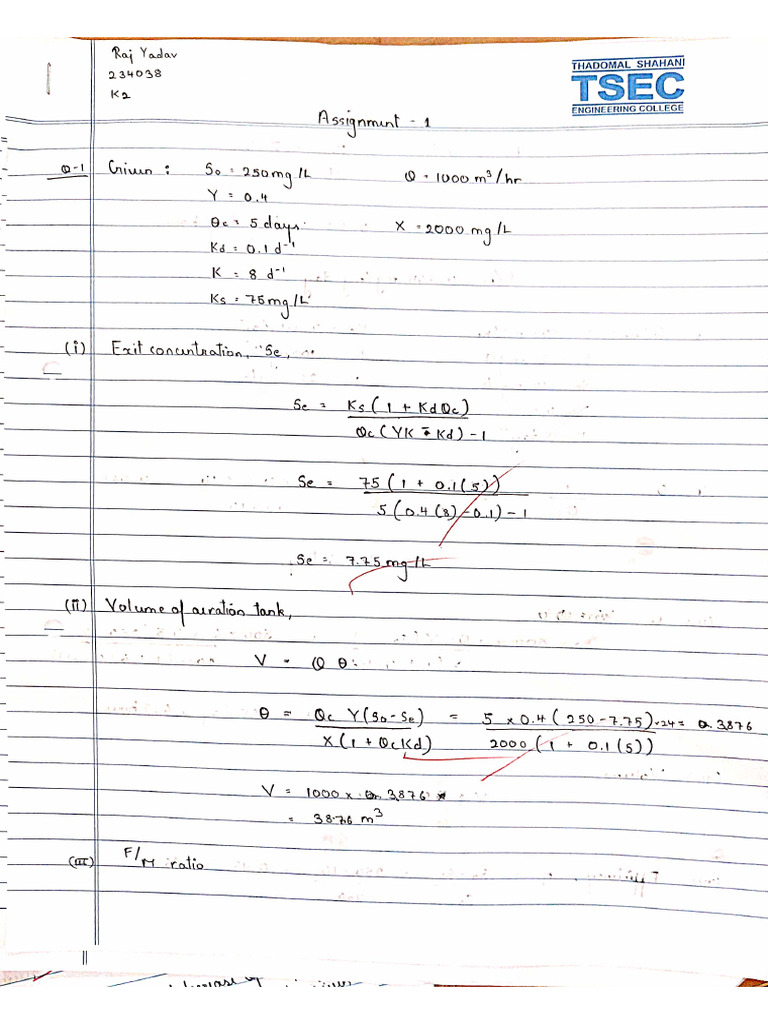 Raj Yadav
234038
K2
THADOMAL SHAHANI
TSEC
ENGINEERING COLLEGE
Assignment - 1
Q-1 Given : S₀ = 250 mg/L Q = 1000 m³/hr
Y = 0.4
θc = 5 days X = 2000 mg/L
Kd = 0.1 d⁻¹
K = 8 d⁻¹
Ks = 75 mg/L
(i) Exit concentration, Se,
Se = Ks(1 + Kdθc)
θc(YK - Kd) - 1
Se = 75(1 + 0.1(5))
5(0.4(8) - 0.1) - 1
Se = 7.75 mg/L
(ii) Volume of aeration tank,
V = Q θ
θ = θc Y(S₀ - Se) = 5 x 0.4(250 - 7.75) 24 = 3.876
X(1 + θcKd) 2000(1 + 0.1(5))
V = 1000 x 3.876
= 3876 m³
(III) F/M ratio